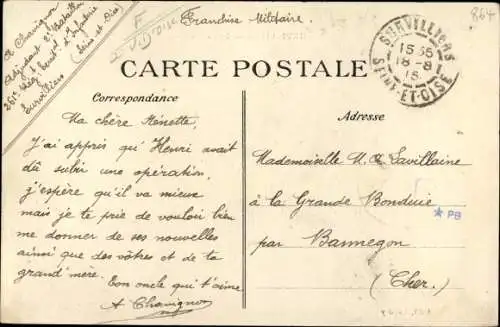 Franchise Militaire.
A Chavignon
Adjudant 2e Bataillon
261e Rég. d'Infanterie
Survilliers
(Seine et Oise)
SURVILLIERS
1535
18-8
15
SEINE-ET-OISE
864
CARTE POSTALE
Correspondance
Adresse
Ma chère Nénette,
J'ai appris qu'Henri avait
dû subir une opération,
j'espère qu'il va mieux
mais je te prie de vouloir bien
me donner de ses nouvelles
ainsi que des vôtres et de ta
grand'mère.
Ton oncle qui t'aime
A Chavignon
Mademoiselle M. Lavillaine
à la Grande Bonduie
par Bannegon
(Cher).
* PB